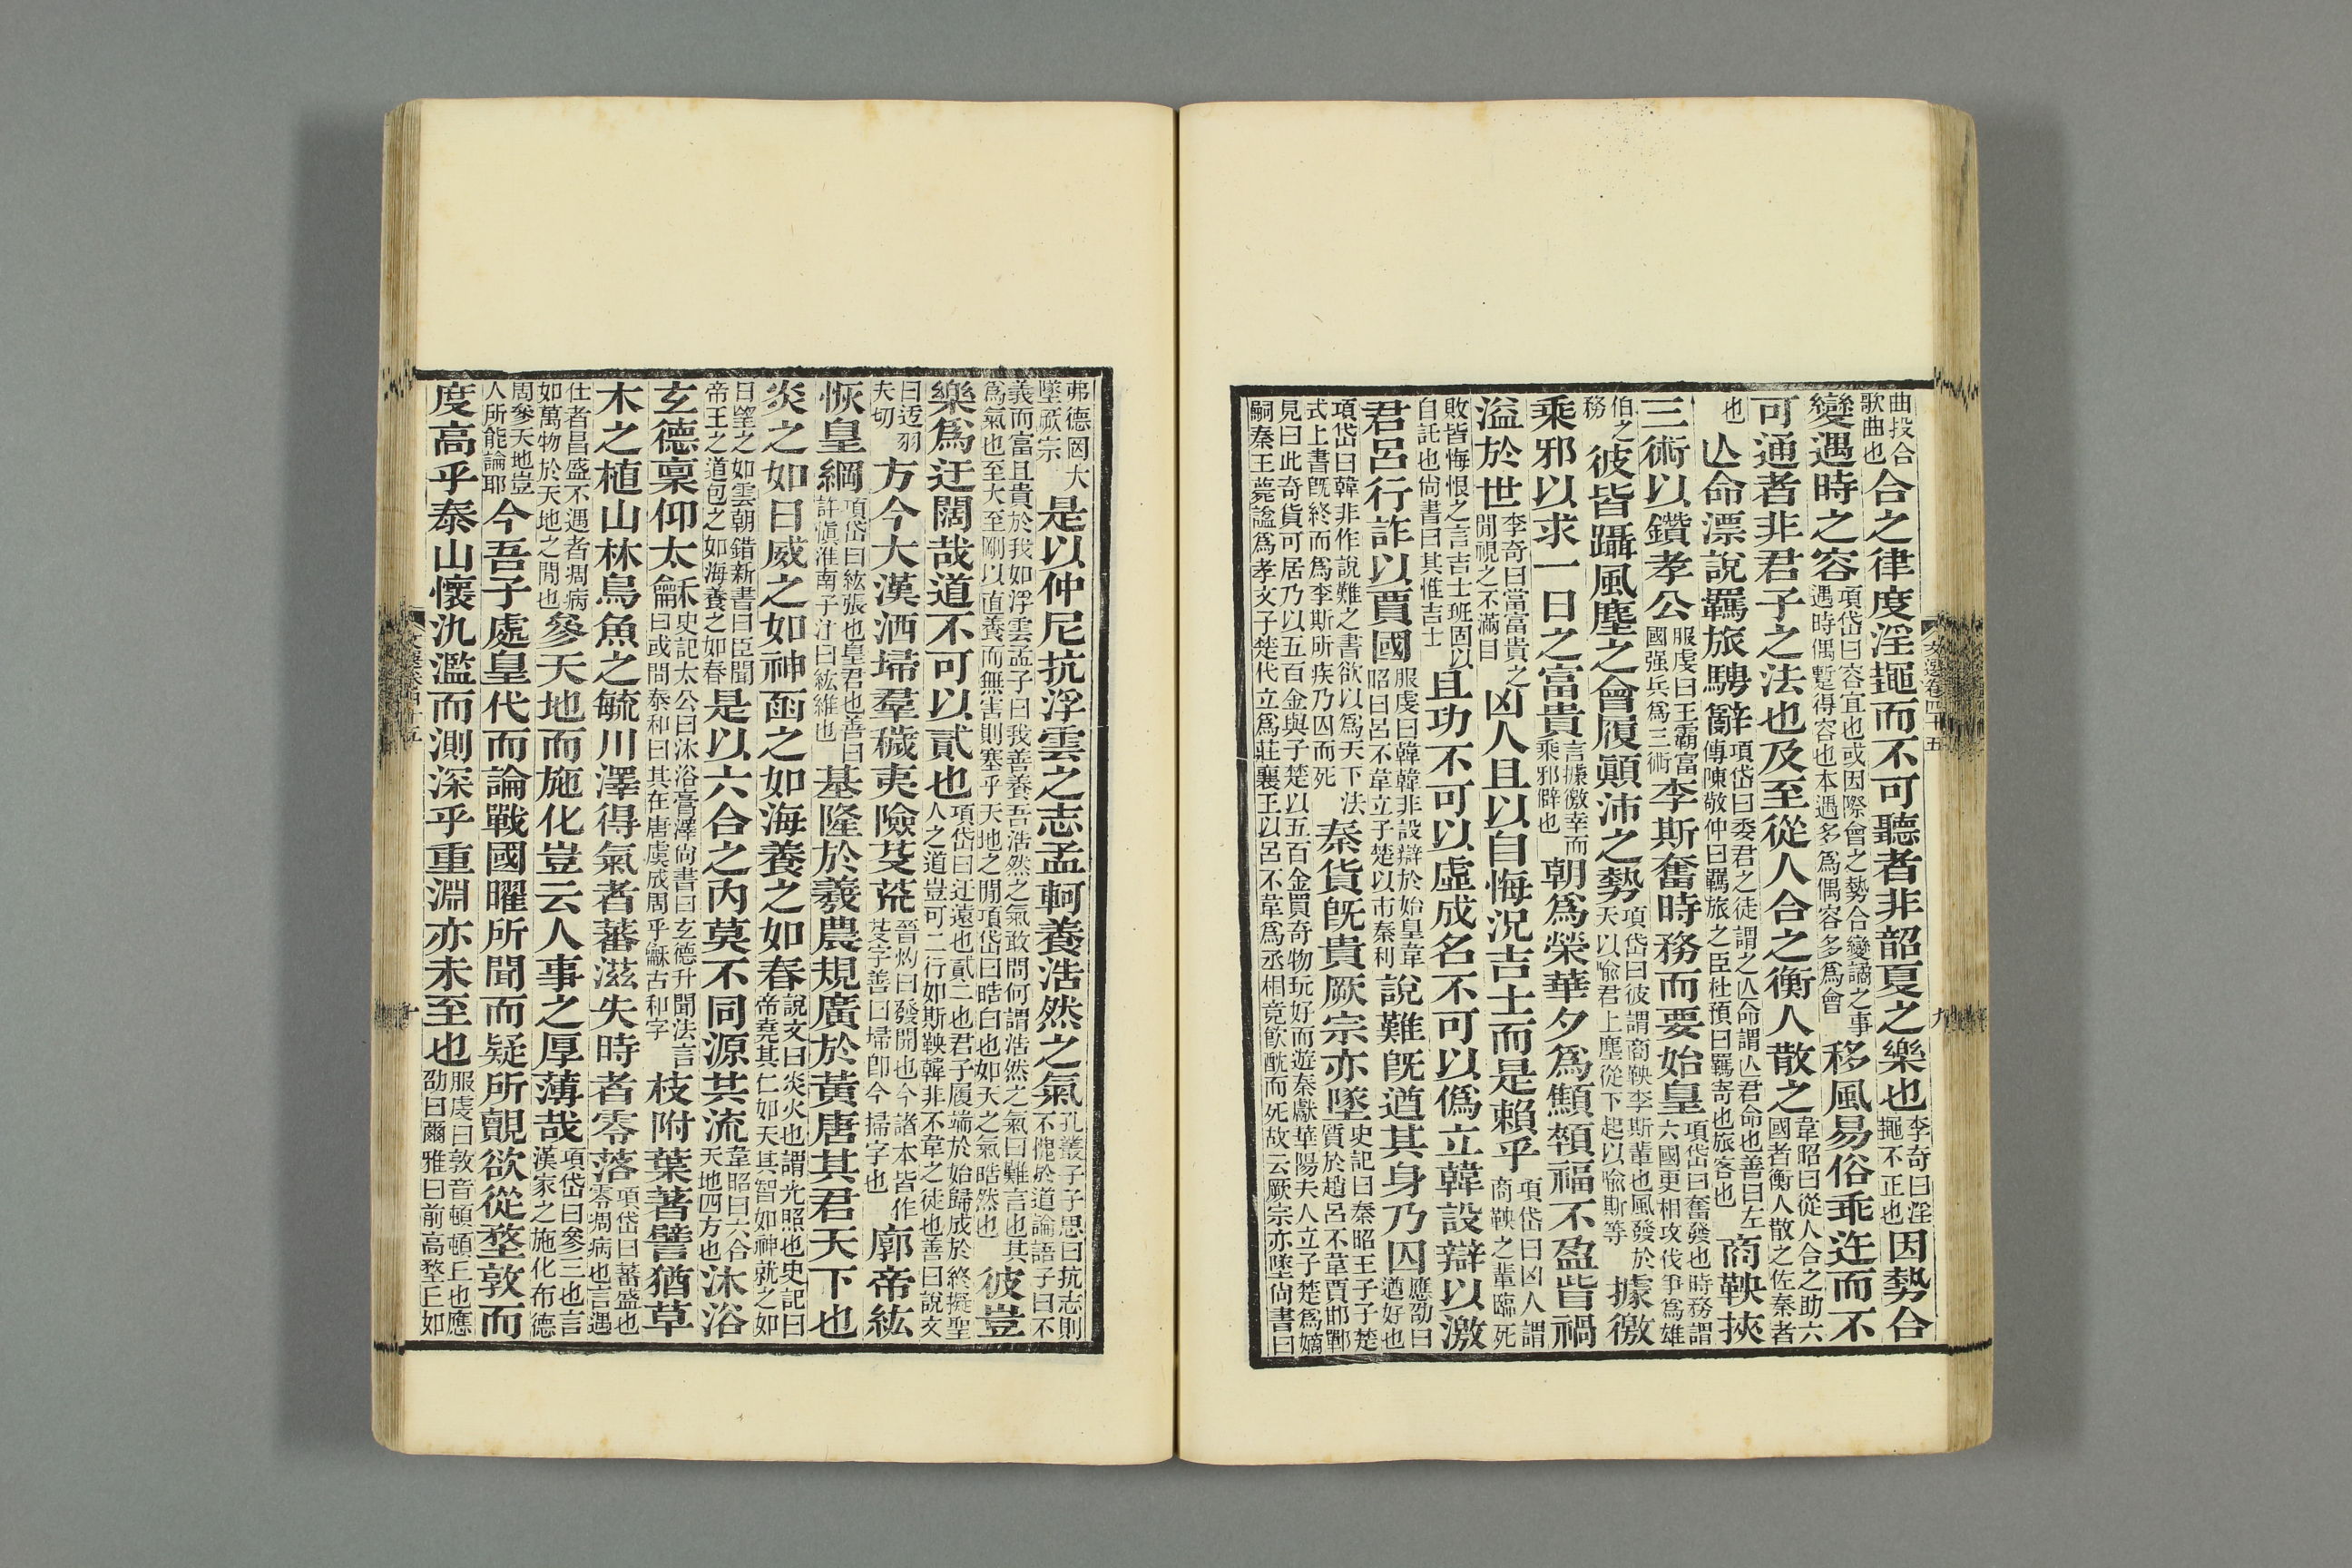 曲投合歌曲也合之律度淫㨯而不可聽者非韶夏之樂也李奇曰淫㨯不正也因勢合
變遇時之容項岱曰容宜也或因際會之勢合變譎之事遇時偶蹔得容也本遇多為偶容多為會移風易俗乖迕而不
可通者非君子之法也及至從人合之衡人散之韋昭曰從人合之助六國者衡人散之佐秦者
也亾命漂說羈旅騁辭項岱曰委君之徒謂之亾命謂亾君命也善曰左傳陳敬仲曰羈旅之臣杜預曰羈寄也旅客也商鞅挾
三術以鑽孝公服虔曰王霸富國强兵為三術李斯奮時務而要始皇項岱曰奮發也時務謂六國更相攻伐爭為雄
伯之務彼皆躡風塵之會履顛沛之勢項岱曰彼謂商鞅李斯輩也風發於天以喻君上塵從下起以喻斯等據徼
乘邪以求一日之富貴言據徼幸而乘邪僻也朝為榮華夕為顦顇福不盈眥禍
溢於世李奇曰當富貴之閒視之不滿目凶人且以自悔況吉士而是賴乎項岱曰凶人謂商鞅之輩臨死
敗皆悔恨之言吉士班固以自託也尙書曰其惟吉士且功不可以虛成名不可以僞立韓設辯以激
君呂行詐以賈國服虔曰韓韓非設辯於始皇韋昭曰呂不韋立子楚以市秦利說難旣遒其身乃囚應劭曰遒好也
項岱曰韓非作說難之書欲以為天下法式上書旣終而為李斯所疾乃囚而死秦貨旣貴厥宗亦墜史記曰秦昭王子子楚質於趙呂不韋賈邯鄲
見曰此奇貨可居乃以五百金與子楚以五百金買奇物玩好而遊秦獻華陽夫人立子楚為嫡嗣秦王薨諡為孝文子楚代立為莊襄王以呂不韋為丞相竟飮酖而死故云厥宗亦墜尙書曰
文選卷四十五
九
弗德罔大墜厥宗是以仲尼抗浮雲之志孟軻養浩然之氣孔叢子子思曰抗志則不愧於道論語子曰不
義而富且貴於我如浮雲孟子曰我善養吾浩然之氣敢問何謂浩然之氣曰難言也其為氣也至大至剛以直養而無害則塞乎天地之閒項岱曰晧白也如天之氣晧然也彼豈
樂為迂闊哉道不可以貳也項岱曰迂遠也貳二也君子履端於始歸成於終擬聖人之道豈可二行如斯鞅韓非不韋之徒也善曰說文
曰迃羽夫切方今大漢洒埽羣穢夷險芟荒晉灼曰發開也今諸本皆作芟字善曰埽卽今掃字也廓帝紘
恢皇綱項岱曰紘張也皇君也善曰許愼淮南子注曰紘維也基隆於羲農規廣於黃唐其君天下也
炎之如日威之如神函之如海養之如春說文曰炎火也謂光照也史記曰帝堯其仁如天其智如神就之如
日望之如雲朝錯新書曰臣聞帝王之道包之如海養之如春是以六合之內莫不同源共流韋昭曰六合天地四方也沐浴
玄德稟仰太龢史記太公曰沐浴膏澤尙書曰玄德升聞法言曰或問泰和曰其在唐虞成周乎龢古和字枝附葉著譬猶草
木之植山林鳥魚之毓川澤得氣者蕃滋失時者零落項岱曰蕃盛也零凋病也言遇
仕者昌盛不遇者凋病如萬物於天地之閒也參天地而施化豈云人事之厚薄哉項岱曰參三也言漢家之施化布德
周參天地豈人所能論耶今吾子處皇代而論戰國曜所聞而疑所覿欲從堥敦而
度高乎泰山懷氿濫而測深乎重淵亦未至也服虔曰敦音頓頓丘也應劭曰爾雅曰前高堥丘如
文選卷四十五
十